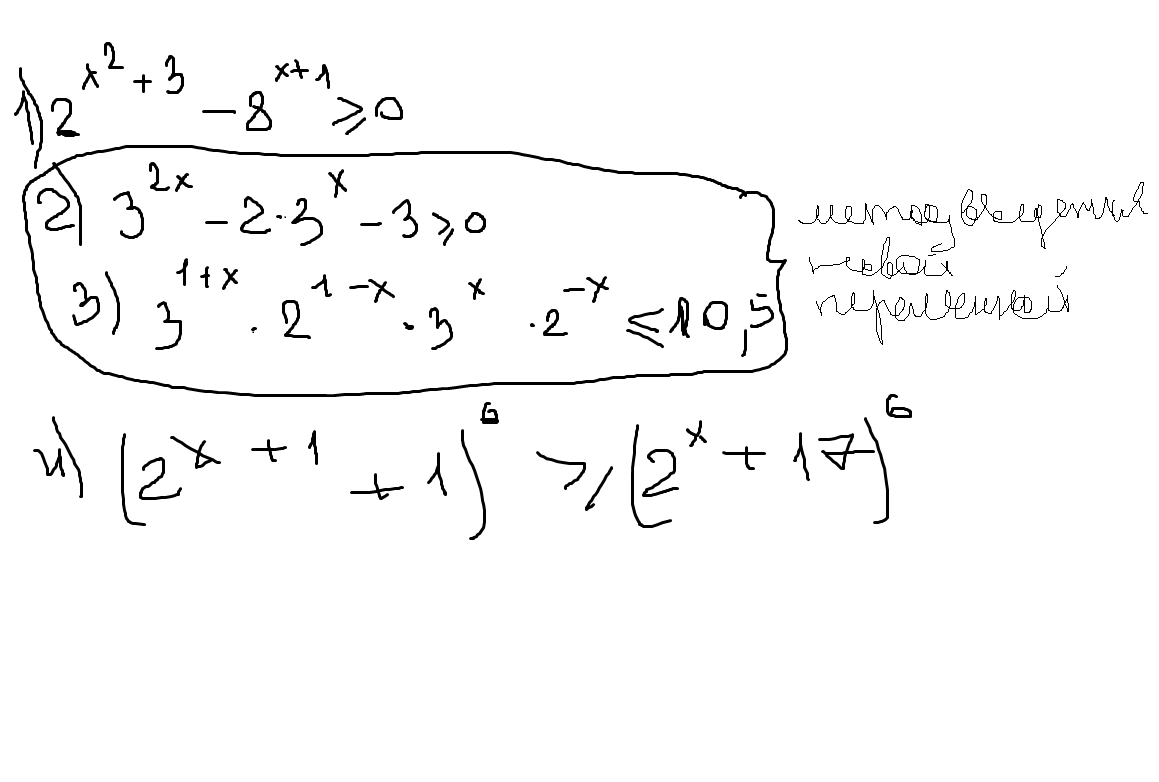 1) 2^{x^2+3} - 8^{x+1} ⩾ 0
2) 3^{2x} - 2·3^x - 3 ⩾ 0
метод введения
новой
переменной
3) 3^{1+x} · 2^{1-x} · 3^x · 2^{-x} ⩽ 10,5
4) (2^{x+1} + 1)^6 ⩾ (2^x + 17)^6